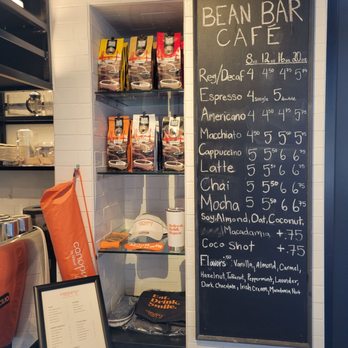 BEAN BAR
CAFÉ
8oz 12oz 16oz 20oz
Reg/Decaf 4 4⁵⁰ 4⁷⁵ 5
Espresso 4 single 5 double
Americano 4 4⁵⁰ 4⁷⁵
Macchiato 4⁵⁰ 5 5⁵⁰
Cappuccino 5 5⁵⁰ 6 6⁷⁵
Latte 5 5⁵⁰ 6 6⁷⁵
Chai 5 5⁵⁰ 6 6⁷⁵
Mocha 5 5⁵⁰ 6 6⁷⁵
Soy, Almond, Oat, Coconut,
Macadamia +.75
Coco Shot +.75
Flavors .50 Vanilla, Almond, Caramel,
Hazelnut, Peppermint, Lavander,
Dark Chocolate, Irish Cream, Macadamia Nut
canopy
Eat.
Drink.
Smile.